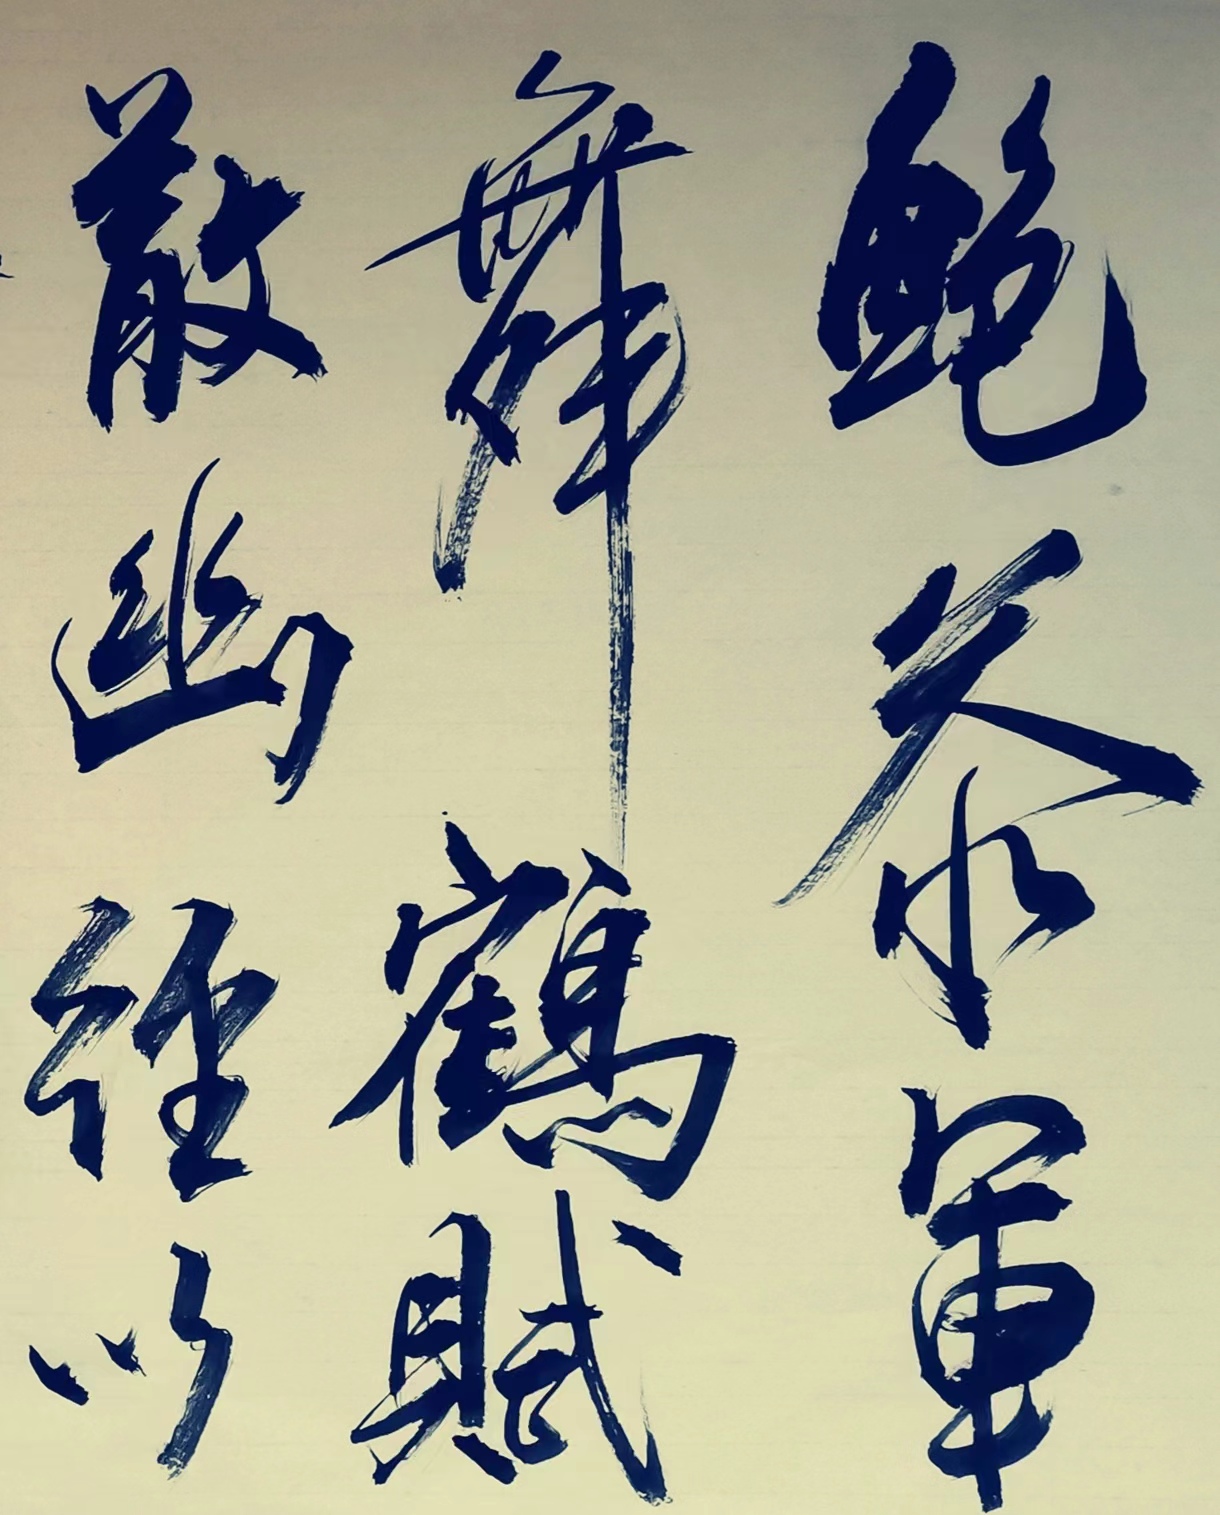 鮑參軍
舞鶴賦
散幽經以